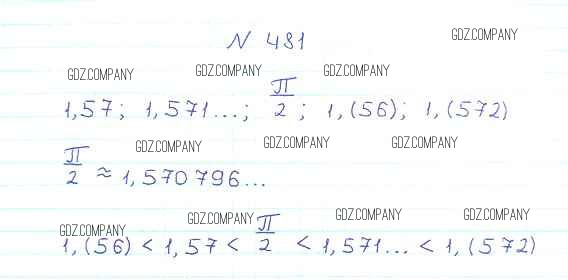 N 481
GDZ.COMPANY
GDZ.COMPANY GDZ.COMPANY GDZ.COMPANY
1,57; 1,571...; π/2; 1,(56); 1,(572)
GDZ.COMPANY GDZ.COMPANY GDZ.COMPANY
π/2 ≈ 1,570796...
GDZ.COMPANY GDZ.COMPANY GDZ.COMPANY GDZ.COMPANY
1,(56) < 1,57 < π/2 < 1,571... < 1,(572)